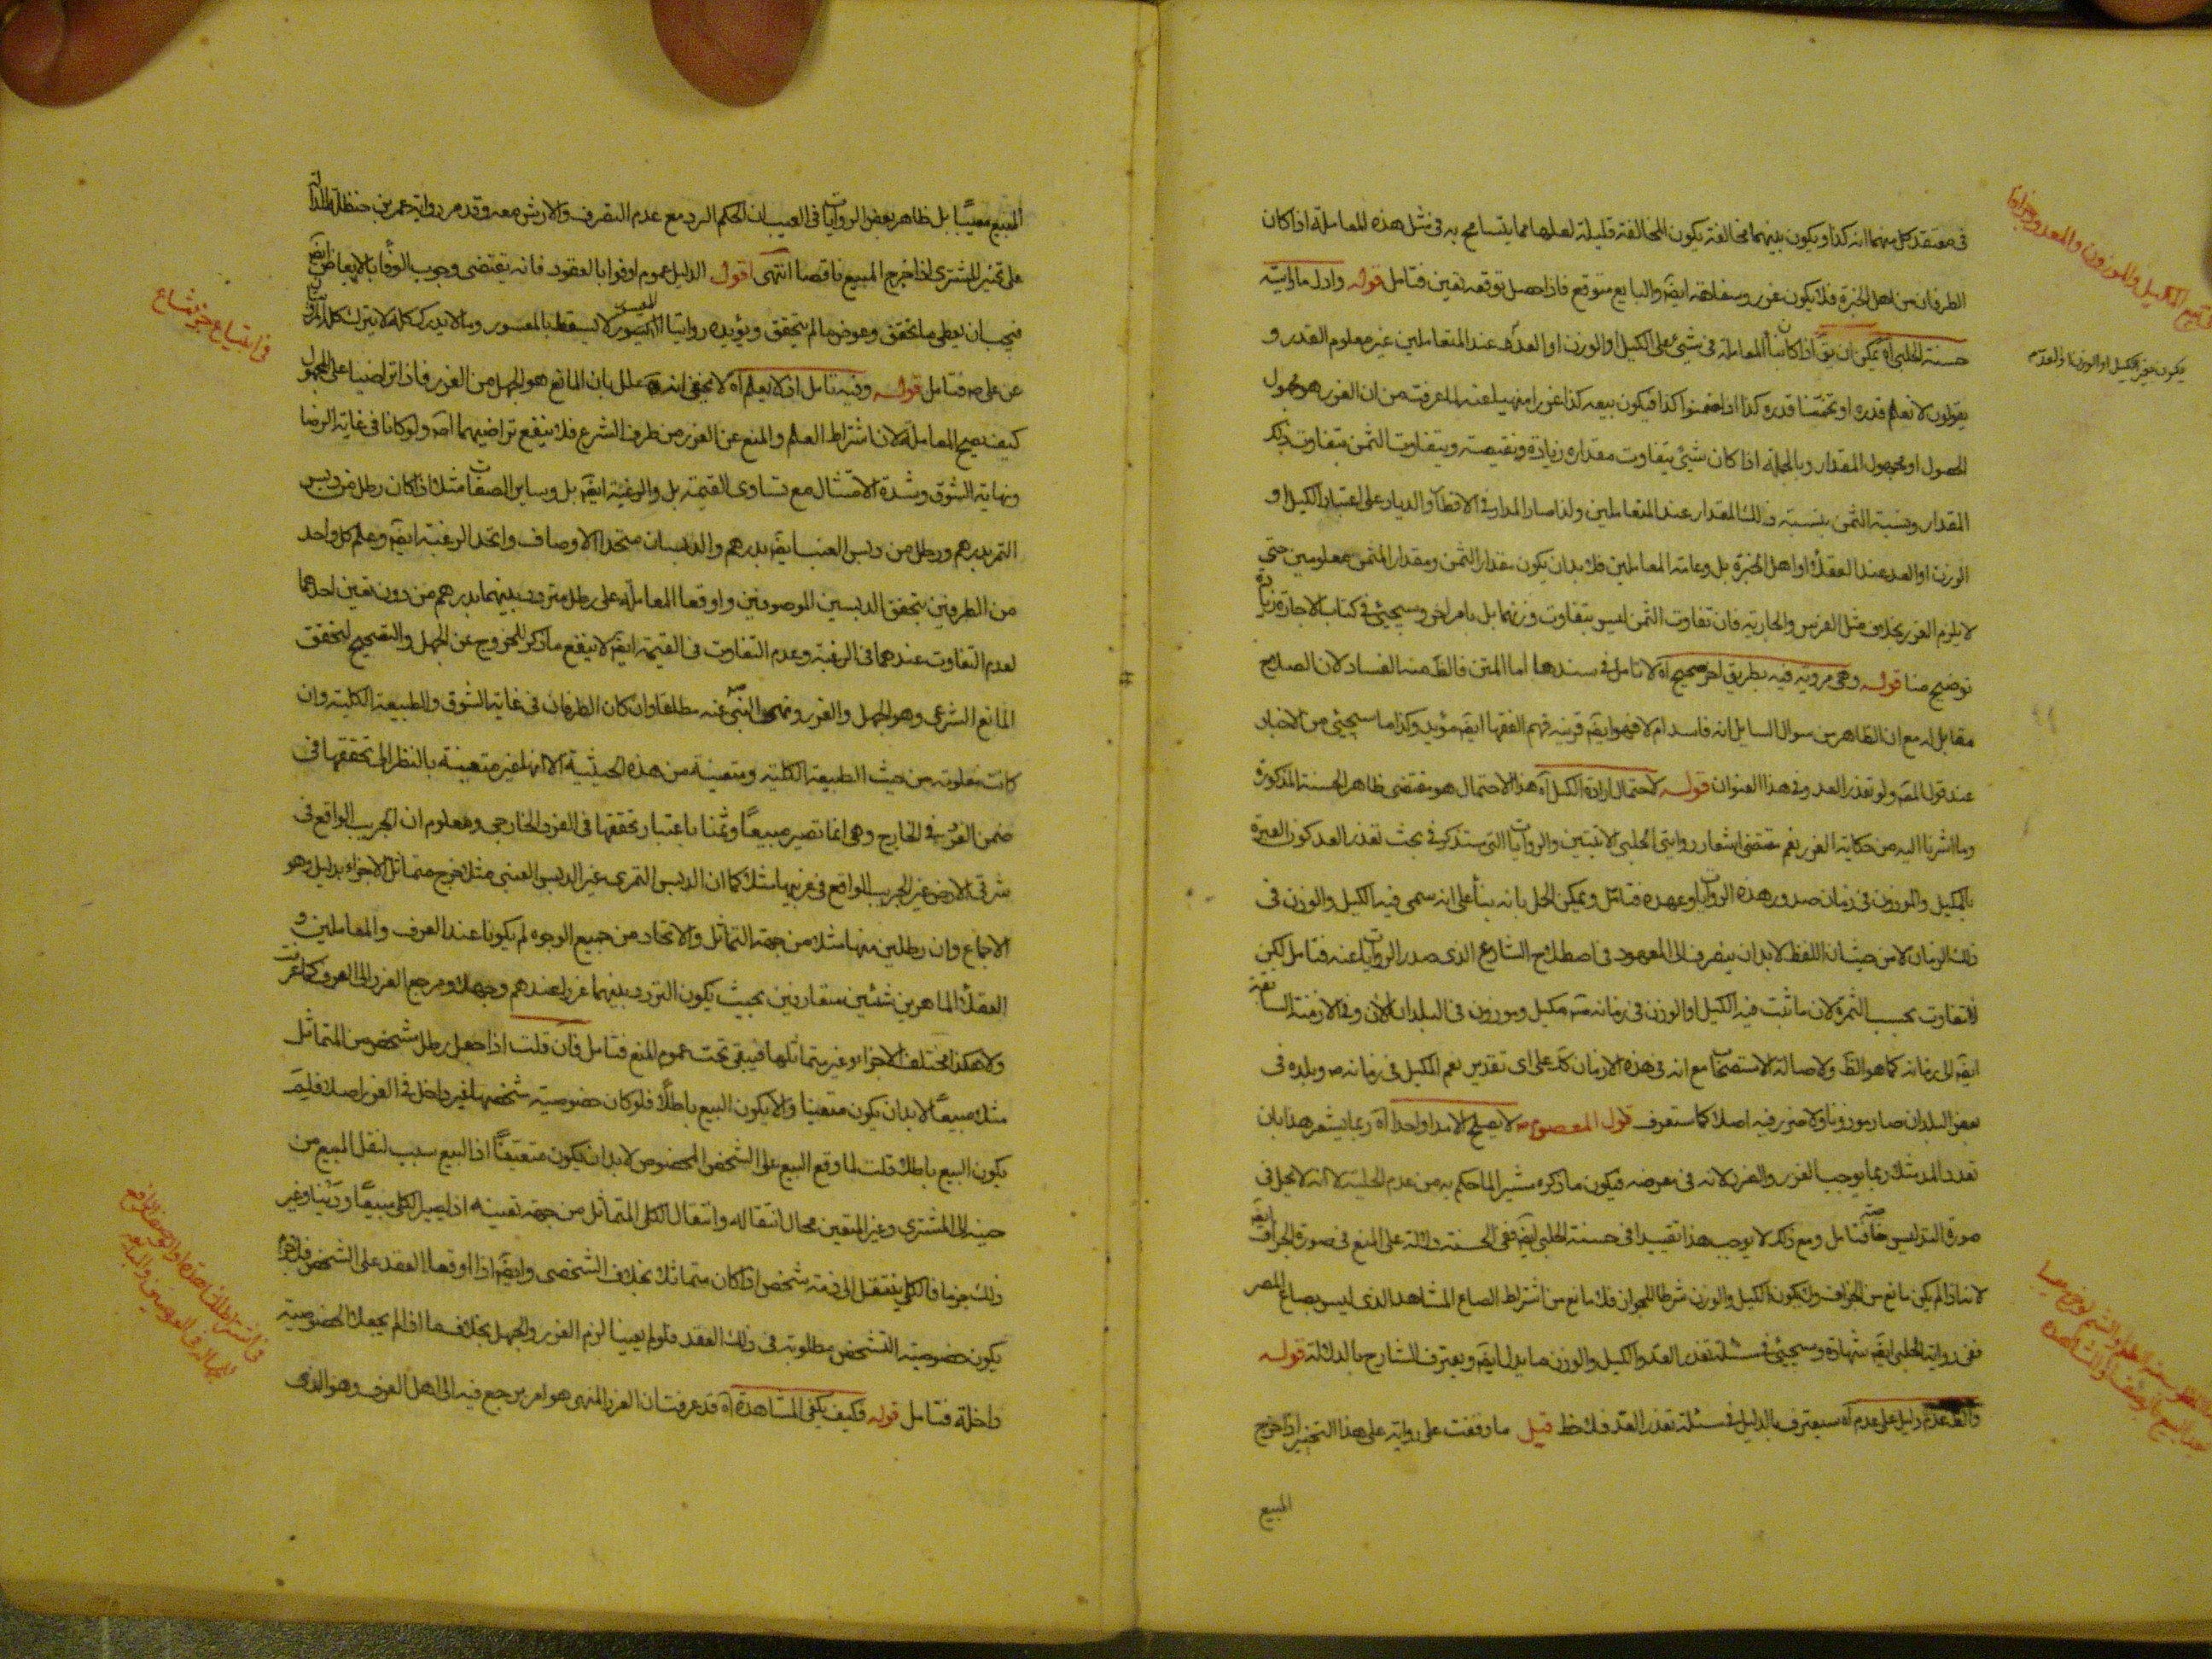 في معتقد كل منهما انه كذا ويكون بينهما مخالفة يكون المخالفة قليلة لعلها مما يتسامح به في مثل هذه المعاملة اذا كان
الطرفان من اهل الخبرة فلا يكون غرر وسفاهة ايضا والبايع متوقع فاذا حصل توقعه تعين فتامل قوله وادل ما رايته
حسنة الحلبي آه يمكن ان يق اذا كان بناء المعاملة في شيء على الكيل او الوزن او العد عند المتعاملين غير معلوم القدر و
يقولون لا نعلم قدره او تخمنا قدره كذا فيكون بيعه كذا غررا منهيا عنه لما عرفت من ان الغرر هو مجهول
الحصول او مجهول المقدار وبالجملة اذا كان شيء يتفاوت مقداره زيادة ونقيصة ويتفاوت الثمن بتفاوت ذلك
المقدار ونسبة الثمن بنسبة ذلك المقدار عند المتعاملين ولذا صار المدار في الاقطار والديار على اعتبار الكيل او
الوزن او العد عند العقلاء او اهل الخبرة بل وعامة المعاملين فلا بد ان يكون مقدار الثمن ومقدار المثمن معلومين حتى
لا يلزم الغرر بخلاف مثل الفرس والجارية فان تفاوت الثمن ليس بتفاوت وزنهما بل بامر اخر وسيجيء في كتاب الاجارة زيادة
توضيح منا قوله وهي مروية فيه بطريق اخر صحيح آه لا تامل في سندها اما المتن فالظ منه الفساد لان الصلاح
مقابل له مع ان الظاهر من سوال السايل انه فاسد ام لا فهو ايضا قرينة فهم الفقها ايضا مؤيد وكذا ما سيجيء من الاخبار
عند قول المص ولو تعذر العد وفي هذا العنوان قوله لاحتمال ارادة الكيل آه هذا الاحتمال هو مقتضى ظاهر الحسنة المذكورة
وما اشرنا اليه من حكاية الغرر نعم مقتضى اشعار روايتي الحلبي الاتيتين والروايات التي ستذكر في بحث تعذر العد كون العبرة
بالمكيل والموزون في زمان صدور هذه الروايات وعهده فتامل ويمكن الحل بانه بناء على انه سمي فيه الكيل والوزن في
ذلك الزمان لا من حيث ان اللفظ لا بد ان ينصرف الى المعهود في اصطلاح الشارع الذي صدر الروايات عنه فتامل لكن
لا تفاوت بحسب الثمرة لان ما ثبت فيه الكيل او الوزن في زمانه ص مكيل وموزون في البلدان الان وفي الازمنة السابقة
ايضا الى زمانه كما هو الظ ولاصالة الاستصحاب مع انه في هذه الازمان كك على اي تقدير نعم المكيل في زمانه ص وبلده في
بعض البلدان صار موزونا ولا ضرر فيه اصلا كما ستعرف قول المعصوم ع لا يصلح الا مدا واحدا آه ربما يشعر هذا بان
تعدد المد مثلا ربما يوجب الغرر والضرر لانه في معرضه فيكون ما ذكره مشيرا لما حكم به من عدم الحلية لا انه لا يحل في
صورة التدليس خاصة فتامل ومع ذلك لا يوجب هذا تقييدا في حسنة الحلبي ايضا ففي الحسنة دلالة على المنع في صورة الجزاف ايضا
لانه اذا لم يكن مانع من الجزاف ولا يكون الكيل والوزن شرطا للجواز فلا مانع من اشتراط الصاع المشاهد الذي ليس بصاع المصر
ففي رواية الحلبي ايضا شهادة وسيجيء في مسئلة تعذر العد والكيل والوزن ما يدل ايضا ويعترف الشارح بالدلالة قوله
والظ عدم دليل على عدم آه سيعترف بالدليل في مسئلة تعذر العد فلاحظ قيل ما وقفت على رواية على هذا التخيير اذا خرج
المبيع
المبيع معيبا بل ظاهر بعض الروايات في العيب ان الحكم الرد مع عدم التصرف والارش معه وقد مر رواية عمر بن حنظلة الدالة
على تخير المشتري اذا خرج المبيع ناقصا انتهى اقول الدليل عموم اوفوا بالعقود فانه يقتضي وجوب الوفا بالابعاض ايضا
فيجب ان يعطي ما تحقق وعوض ما لم يتحقق ويؤيده روايتا الميسور لا يسقط بالمعسور وما لا يدرك كله لا يترك كله
عن علي ع فتامل قوله وفيه تامل اذ لا يعلم آه لا يخفى انه علل بان المانع هو الجهل من الغرر فاذا تراضيا على المجهول
كيف يصح المعاملة لان اشتراط العلم والمنع عن الغرر من طرف الشرع فلا ينفع تراضيهما آه ولو كانا في غاية الرضا
ونهاية الشوق وشدة الامتثال مع تساوي القيمة بل والرغبة ايضا بل وساير الصفات مثلا اذا كان رطل من دبس
التمر بدرهم ورطل من دبس العنب ايضا بدرهم والدبسان متحدا الاوصاف واتحد الرغبة ايضا وعلم كل واحد
من الطرفين بتحقق الدبسين الموصوفين واوقعا المعاملة على رطل متردد بينهما بدرهم من دون تعين احدهما
لعدم التفاوت عندهما في الرغبة وعدم التفاوت في القيمة ايضا لا ينفع ما ذكر للخروج عن الجهل والتصحيح لتحقق
المانع الشرعي وهو الجهل والغرر ونهى النبي ص عنه مطلقا وان كان الطرفان في غاية الشوق والطبيعة الكلية وان
كانت معلومة من حيث الطبيعة الكلية ومتعينة من هذه الحيثية الا انها غير متعينة بالنظر الى تحققها في
ضمن الفرد في الخارج وهي انما تصير مبيعا وثمنا باعتبار تحققها في الفرد الخارجي ومعلوم ان الجريب الواقع في
شرقي الارض غير الجريب الواقع في غربيها مثلا كما ان الدبس التمري غير الدبس العنبي مثلا خرج متماثل الاجزاء بدليل وهو
الاجماع وان رطلين منها مثلا من جهة التماثل والاتحاد من جميع الوجوه لم يكونا عند العرف والمعاملين و
العقلاء الماهرين شيئين متقاربين بحيث يكون التردد بينهما غررا عندهم وجهلا ومرجع الغرر الى العرف كما عرفت
ولا هكذا مختلف الاجزاء وغير متماثلها فيبقى تحت عموم المنع فتامل فان قلت اذا جعل رطل شخص من المتماثل
مثلا مبيعا لا بد ان يكون متعينا والا يكون البيع باطلا فلو كان خصوصية شخصها غير داخل في الغرر اصلا فلم
يكون البيع باطلا قلت لما وقع البيع على الشخص المخصوص لا بد ان يكون متعينا اذ البيع سبب لنقل المبيع من
حينه الى المشتري وغير المتعين محال انتقاله وانتقال الكلي المتماثل من جهة تعينه اذ يصير الكلي مبيعا ودينا وغير
ذلك جزما فالكلي ينتقل الى ذمة شخص اذا كان متماثلا بخلاف الشخصي وايضا اذا اوقعا العقد على الشخص فلا بد
يكون خصوصية التشخص مطلوبة في ذلك العقد فلو لم يعينا لزم الغرر والجهل بخلاف ما اذا لم يجعلا الخصوصية
داخلة فتامل قوله فكيف يكفي المشاهدة آه قد عرفت ان الغرر المنهي هو امر يرجع فيه الى اهل العرف وهو الذي
في ابتياع جزء مشاع